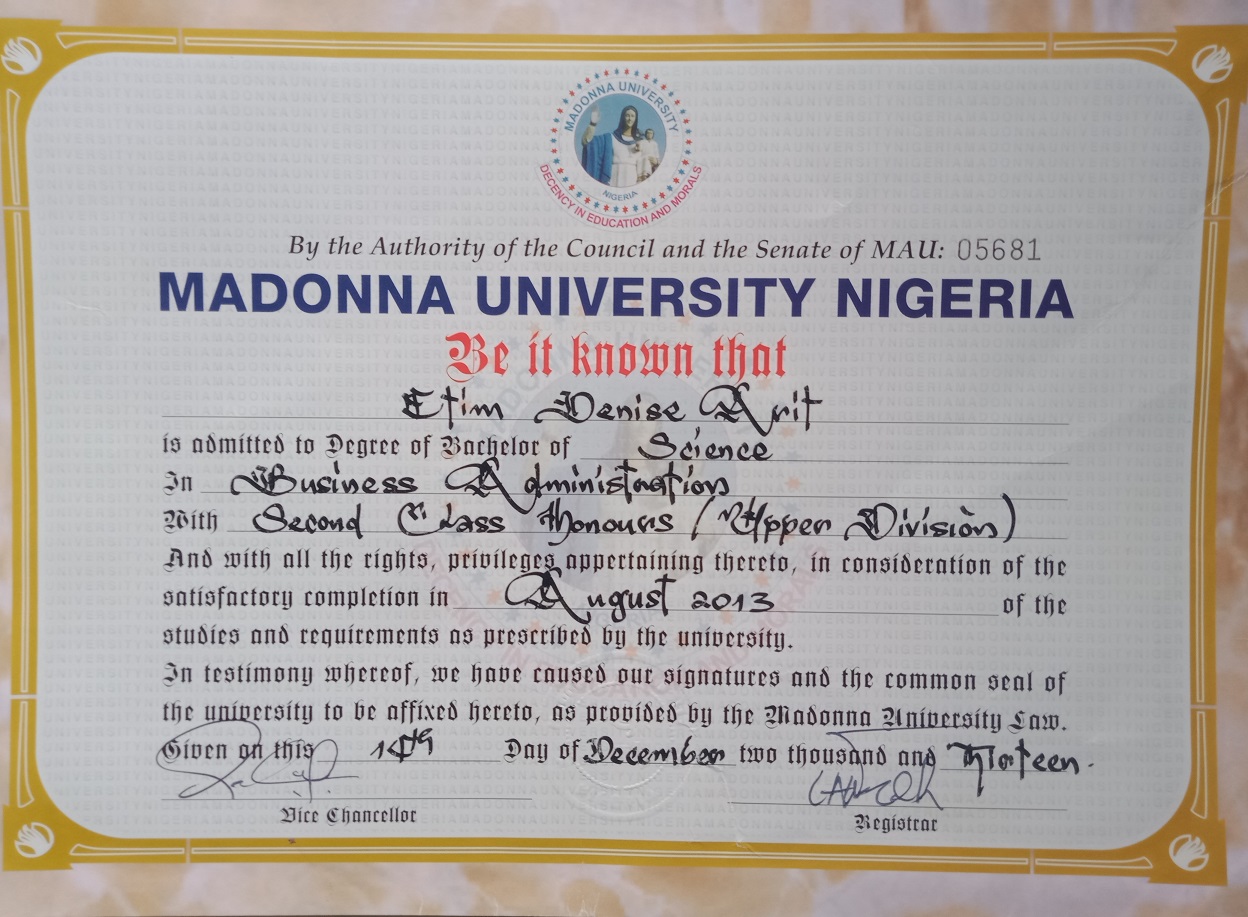 MADONNA UNIVERSITY
NIGERIA
DECENCY IN EDUCATION AND MORALS
By the Authority of the Council and the Senate of MAU: 05681
MADONNA UNIVERSITY NIGERIA
Be it known that
Etim Denise Arit
is admitted to Degree of Bachelor of Science
In Business Administration
With Second Class Honours (Upper Division)
And with all the rights, privileges appertaining thereto, in consideration of the
satisfactory completion in August 2013 of the
studies and requirements as prescribed by the university.
In testimony whereof, we have caused our signatures and the common seal of
the university to be affixed hereto, as provided by the Madonna University Law.
Given on this 14th Day of December two thousand and Thirteen.
Vice Chancellor
Registrar